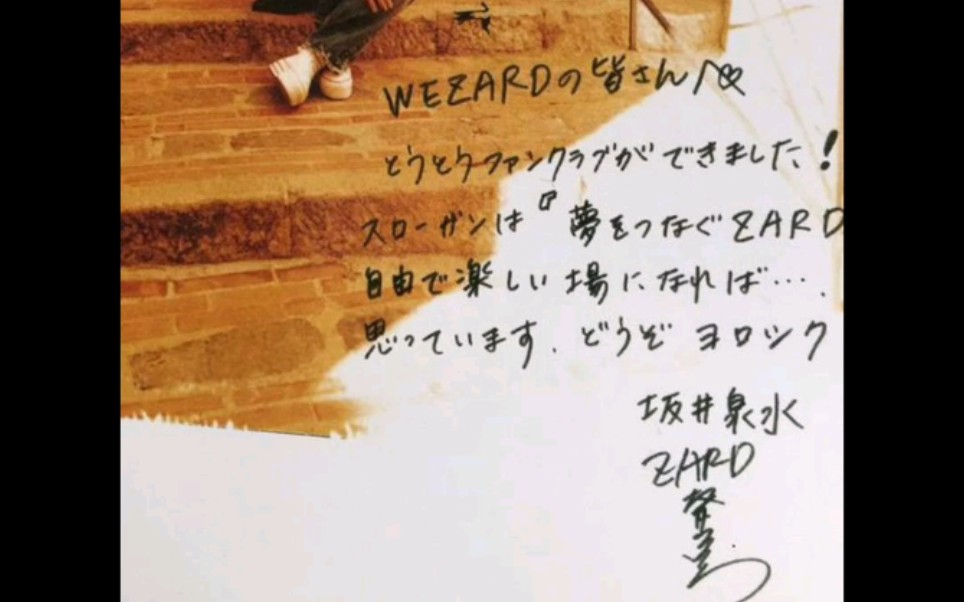 WEZARDの皆さんへ
とうとうファンクラブができました!
スローガンは『夢をつなぐZARD
自由で楽しい場になれば…
思っています. どうぞ ヨロシク
坂井泉水
ZARD